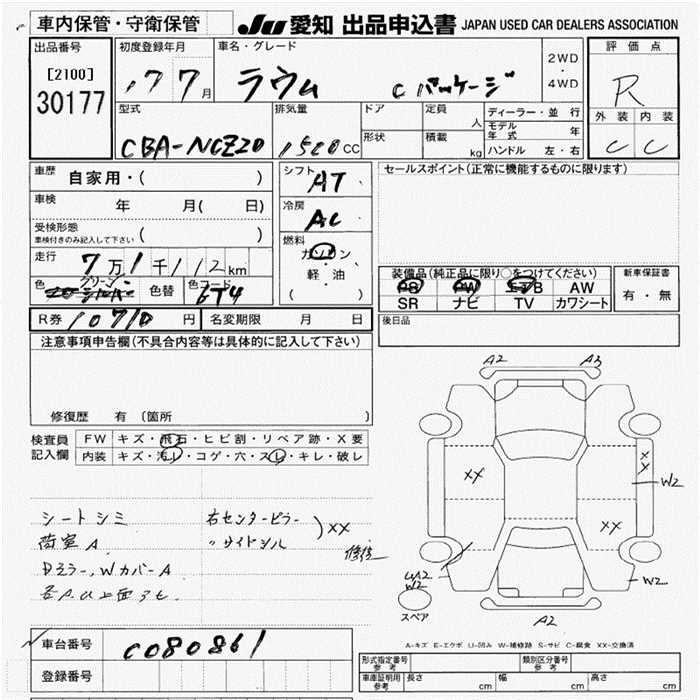 車内保管・守衛保管
JU 愛知 出品申込書 JAPAN USED CAR DEALERS ASSOCIATION
出品番号
[2100]
30177
初度登録年月
17 7月
車名・グレード
ラウム Cパッケージ
2WD
・
4WD
評価点
R
外装 内装
C C
型式
CBA-NCZ20
排気量
1500CC
ドア
形状
定員
人
積載
kg
ディーラー・並行
モデル年式 年
ハンドル 左・右
車歴
自家用・( )
車検
年 月( 日)
受検形態
車検付きのみ記入して下さい ( )
走行
7万1千112km
色
グリーン
色替
色コード
6T4
シフト
AT
冷房
AC
燃料
ガソリン
・
軽・油
( )
セールスポイント(正常に機能するものに限ります)
装備品(純正品に限り○をつけてください)
PS PW エアB AW
SR ナビ TV カワシート
新車保証書
有・無
R券 10710円
名変期限 月 日
後日品
注意事項申告欄(不具合内容等は具体的に記入して下さい)
修復歴 有 〔箇所
検査員
記入欄
FW キズ・飛石・ヒビ割・リペア跡・X要
内装 キズ・汚レ・コゲ・穴・スレ・キレ・破レ
シートシミ
荷室A
Dミラー,WカバーA
右センターピラー
〃サイドシル
)XX
修復
A2 A3
XX
XX
W2
XX
W2
W2
スペア
A2
A-キズ E-エクボ U-凹み W-補修跡 S-サビ C-腐食 XX-交換済
車台番号
C080861
登録番号
形式指定番号
参考
類別区分番号
参考
車庫証明用
参考
長さ cm
幅 cm
高さ cm